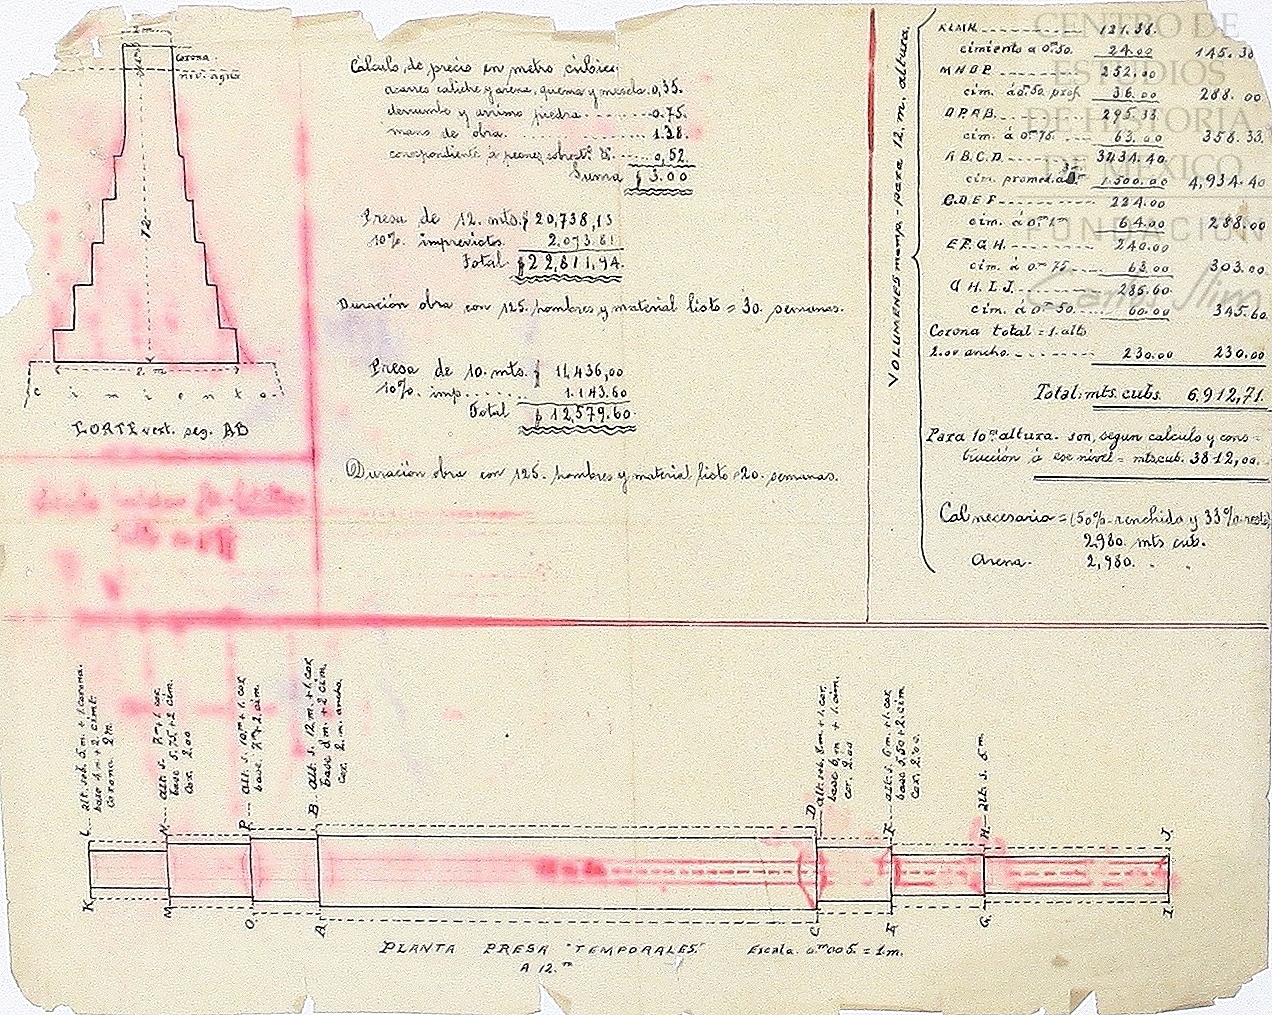 2 m
Corona
niv. agua
12
8. m
C i m i e n t o.
CORTE vert. seg. AB
Cálculo, de precio en metro cúbico:
acarreo caliche y arena, quema y mezcla. 0,35.
derrumbe y arrimo piedra. ---- 0.75.
mano de obra. ---------- 1.38.
correspondiente á peones, sobrest. &. ---- 0,52.
Suma $ 3.00
Presa de 12. mts. $ 20,738,13
10%. imprevistos 2,073.81
Total. $ 22,811,94.
Duración obra con 125. hombres y material listo = 30. semanas.
Presa de 10. mts. $ 11,436,00
10%. imp. ...... 1.143.60
Total $ 12,579.60.
Duración obra con 125. hombres y material listo = 20. semanas.
VOLUMENES mamp. - para 12. m. altura.
K L M N. ------- 121.38.
cimiento a 0m 50. 24.00 145.38
M N O P. ------- 252.00
cim. á 0m 50. prof. 36.00 288.00
O P A B. ------- 295.33.
cim. á 0m 75. ---- 63.00 358.33.
A B C D. ------- 3434.40.
cim. promed. a 1.500.00 4,934.40
C D E F ------- 224.00
cim. á 0m 64.00 288.00
E F G H. ------- 240.00
cim. á 0m 75 63.00 303.00
G H I J. ------- 285.60
cim. á 0m 50. 60.00 345.60
Corona total = 1. alto
2.00 ancho. ------- 230.00 230.00
Total: mts. cubs. 6.912,71.
Para 10m altura. son, segun calculo y cons-
trucción á ese nivel = mts. cub. 3812,00.
Cal necesario = (50% renchido y 33% resto)
2980. mts cub.
Arena. 2,980. " "
L--- alt. sob. 5. m. + 1. corona.
base 4. m + 2. cimt.
Corona 2 m.
N--- alt. s. 7m + 1. cor.
base 5.75 + 2 cim.
cor. 2.00
P--- alt. s. 10m + 1. cor
base. 7m + 2. cim.
B--- alt. s. 12 m. + 1. cor
base 8 m. + 2 cim.
cor. 2. m. ancho.
D alt. sob. 8 m + 1. cor.
base 6, m + 1. cim.
cor. 2.00
F--- alt. s. 6 m + 1. cor
base 5,50 + 2. cim.
cor. 2.00.
H.--- alt. s. 5 m.
J.
K M O. A C E G. I.
PLANTA PRESA "TEMPORALES." Escala. 0,m005. = 1 m.
A 12. m
CENTRO DE
ESTUDIOS
DE HISTORIA
DE MEXICO
FUNDACIÓN
Carlos Slim